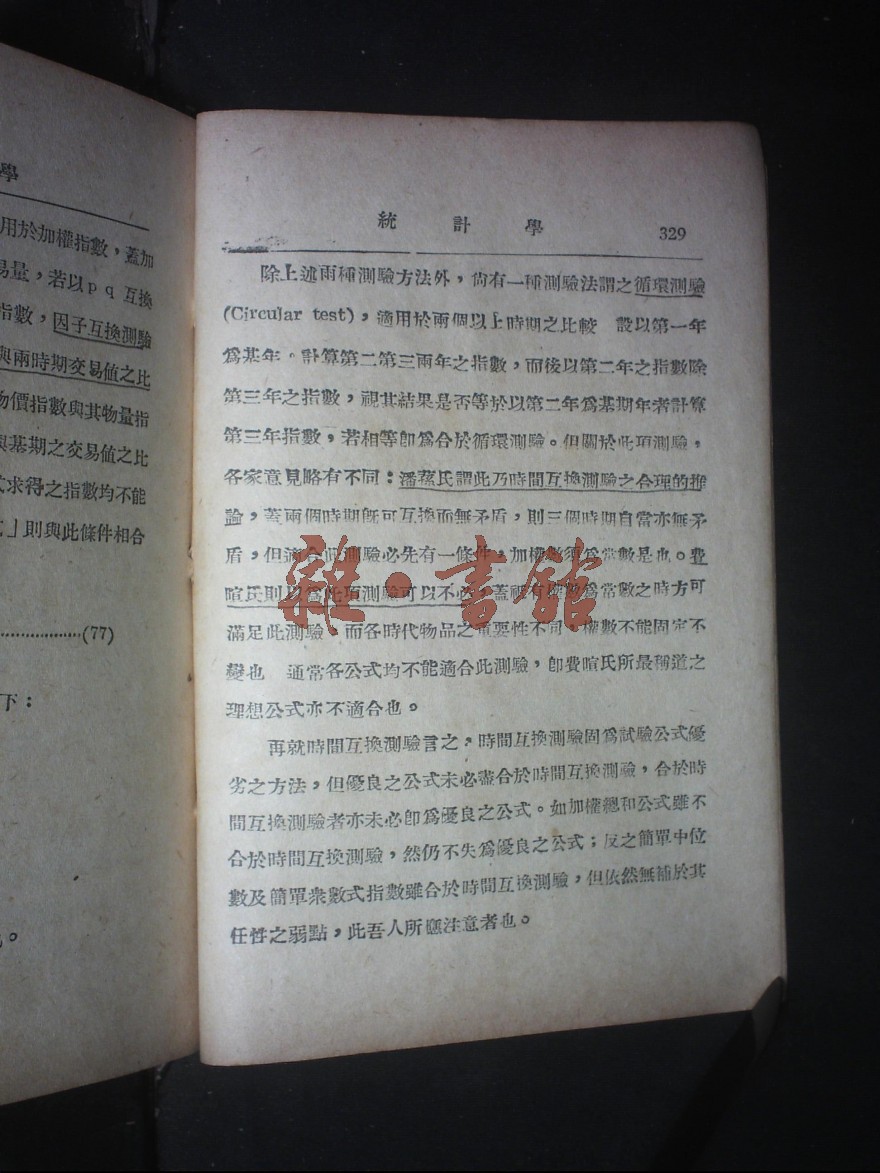 學
用於加權指數，蓋加
易量，若以p q 互換
指數，因子互換測驗
與兩時期交易值之比
物價指數與其物量指
與基期之交易值之比
式求得之指數均不能
」則與此條件相合
(77)
下：
。
統計學 329
除上述兩種測驗方法外，尙有一種測驗法謂之循環測驗
(Circular test)，適用於兩個以上時期之比較 設以第一年
爲基年。計算第二第三兩年之指數，而後以第二年之指數除
第三年之指數，視其結果是否等於以第二年爲基期年來計算
第三年指數，若相等卽爲合於循環測驗。但關於此項測驗，
各家意見略有不同：潘蕬氏謂此乃時間互換測驗之合理的推
論，蓋兩個時期旣可互換而無矛盾，則三個時期自當亦無矛
盾，但適合此測驗必先有一條件，加權數須爲常數是也。費
暄氏則以爲此項測驗可以不必，蓋祇有權數爲常數之時方可
滿足此測驗 而各時代物品之重要性不同，權數不能固定不
變也 通常各公式均不能適合此測驗，卽費暄氏所最稱道之
理想公式亦不適合也。
再就時間互換測驗言之，時間互換測驗固爲試驗公式優
劣之方法，但優良之公式未必盡合於時間互換測驗，合於時
間互換測驗者亦未必卽爲優良之公式。如加權總和公式雖不
合於時間互換測驗，然仍不失爲優良之公式；反之簡單中位
數及簡單衆數式指數雖合於時間互換測驗，但依然無補於其
任性之弱點，此吾人所應注意者也。
雜·書館